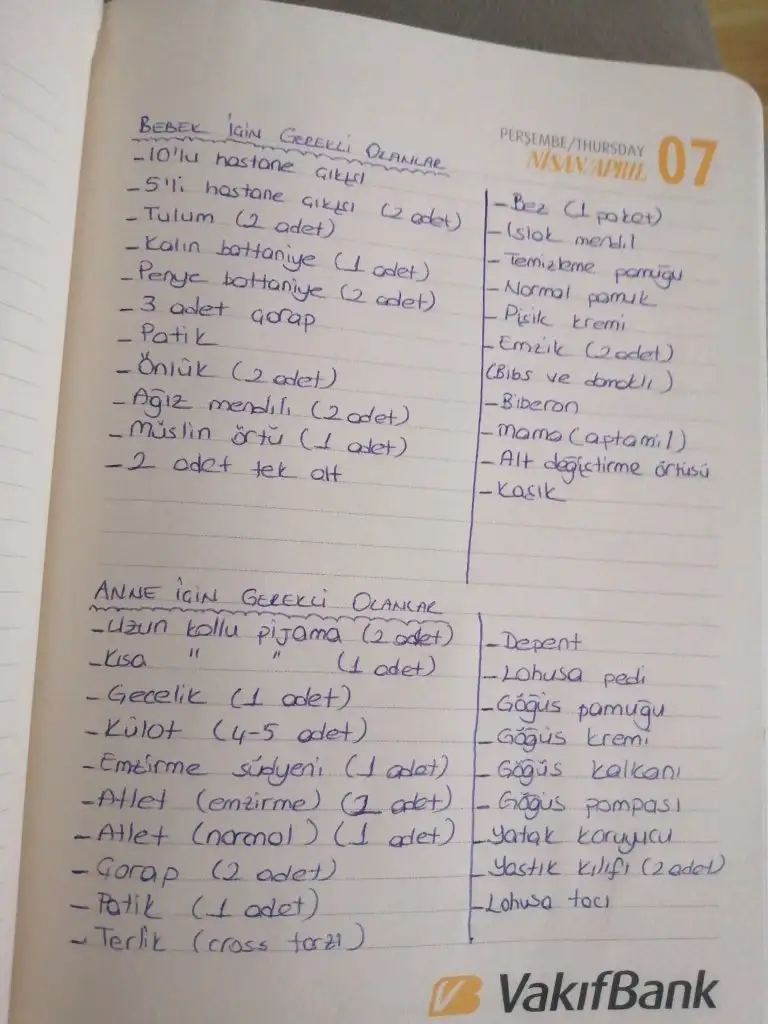 PERŞEMBE/THURSDAY
NİSAN/APRIL 07
BEBEK İÇİN GEREKLİ OLANLAR
-10'lu hastane çıkışı
-5'li hastane çıkışı (2 adet)
-Tulum (2 adet)
-Kalın battaniye (1 adet)
-Penye battaniye (2 adet)
-3 adet çorap
-Patik
-Önlük (2 adet)
-Ağız mendili (2 adet)
-Müslin örtü (1 adet)
-2 adet tek alt
-Bez (1 paket)
-Islak mendil
-Temizleme pamuğu
-Normal pamuk
-Pişik kremi
-Emzik (2 adet)
(Bibs ve damaklı)
-Biberon
-Mama (aptamil)
-Alt değiştirme örtüsü
-Kaşık
ANNE İÇİN GEREKLİ OLANLAR
-Uzun kollu pijama (2 adet)
-Kısa " " (1 adet)
-Gecelik (1 adet)
-Külot (4-5 adet)
-Emzirme südyeni (1 adet)
-Atlet (emzirme) (2 adet)
-Atlet (normal) (1 adet)
-Çorap (2 adet)
-Patik (1 adet)
-Terlik (cross tarzı)
-Depent
-Lohusa pedi
-Göğüs pamuğu
-Göğüs kremi
-Göğüs kalkanı
-Göğüs pompası
-Yatak koruyucu
-Yastık kılıfı (2 adet)
-Lohusa tacı
VakıfBank